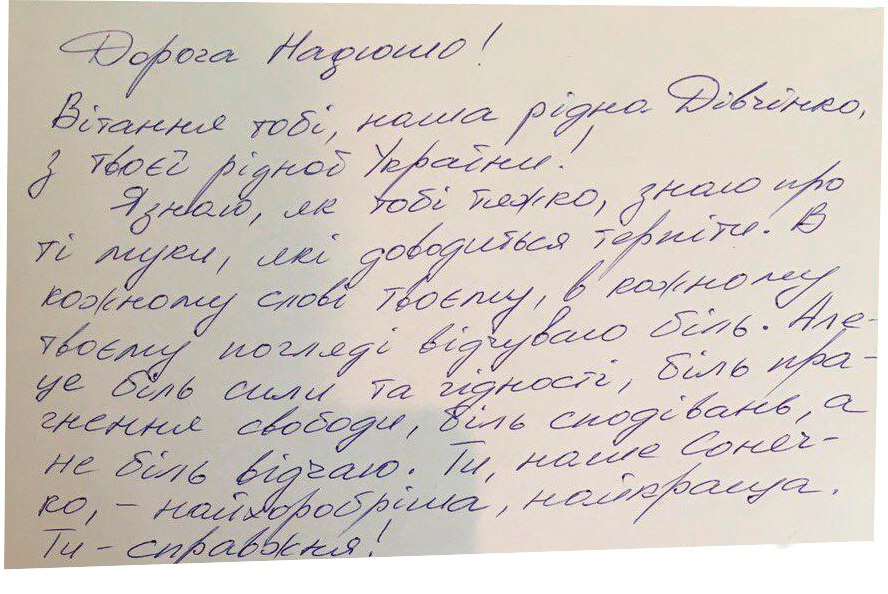 Дорога Надюшо!
Вітання тобі, наша рідна Дівчінко,
з твоєї рідної України!
Я знаю, як тобі тяжко, знаю про
ті муки, які доводиться терпіти. В
кожному слові твоєму, в кожному
твоєму погляді відчуваю біль. Але-
це біль сили та гідності, біль пра-
гнення свободи, біль сподівань, а
не біль відчаю. Ти, наше Сонеч-
ко, - найхоробріша, найкраща.
Ти - справжня!